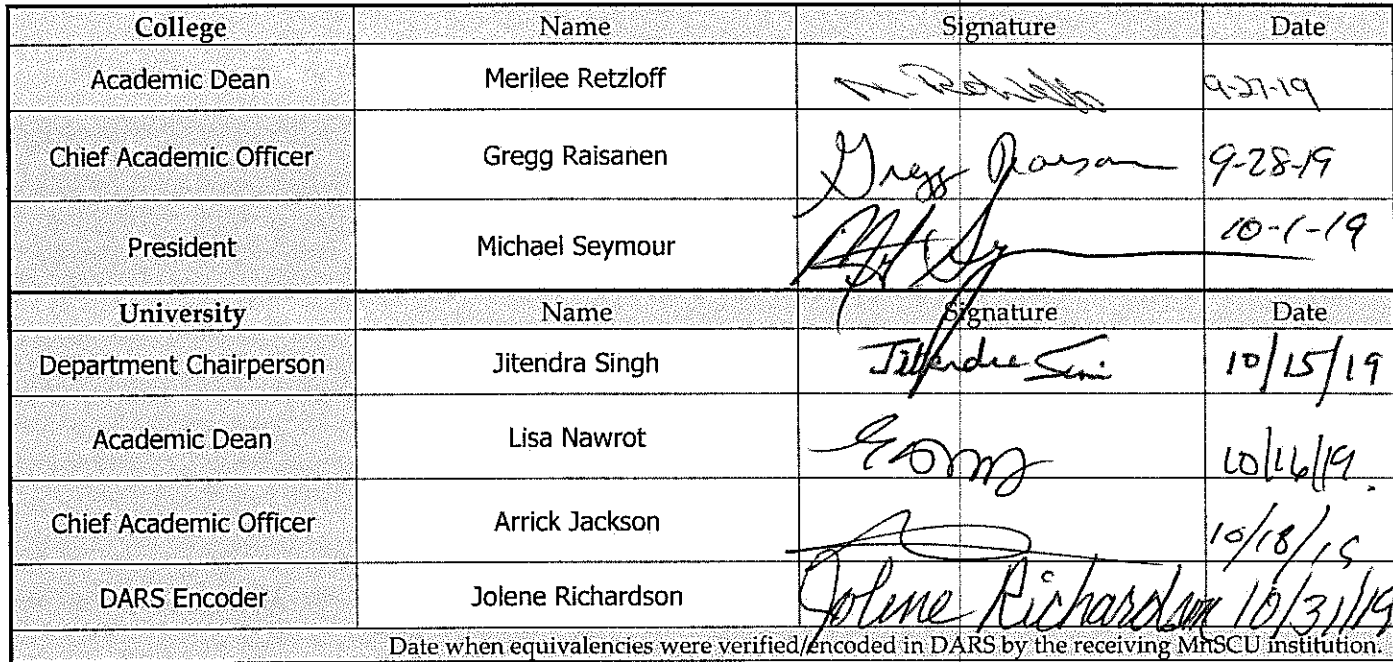 College Name Signature Date
Academic Dean Merilee Retzloff M. Retzloff 9-27-19
Chief Academic Officer Gregg Raisanen Gregg 9-28-19
President Michael Seymour 10-1-19
University Name Signature Date
Department Chairperson Jitendra Singh Jitendra 10/15/19
Academic Dean Lisa Nawrot 10/16/19.
Chief Academic Officer Arrick Jackson 10/18/19
DARS Encoder Jolene Richardson Jolene Richardson 10/31/19
Date when equivalencies were verified/encoded in DARS by the receiving MnSCU institution.